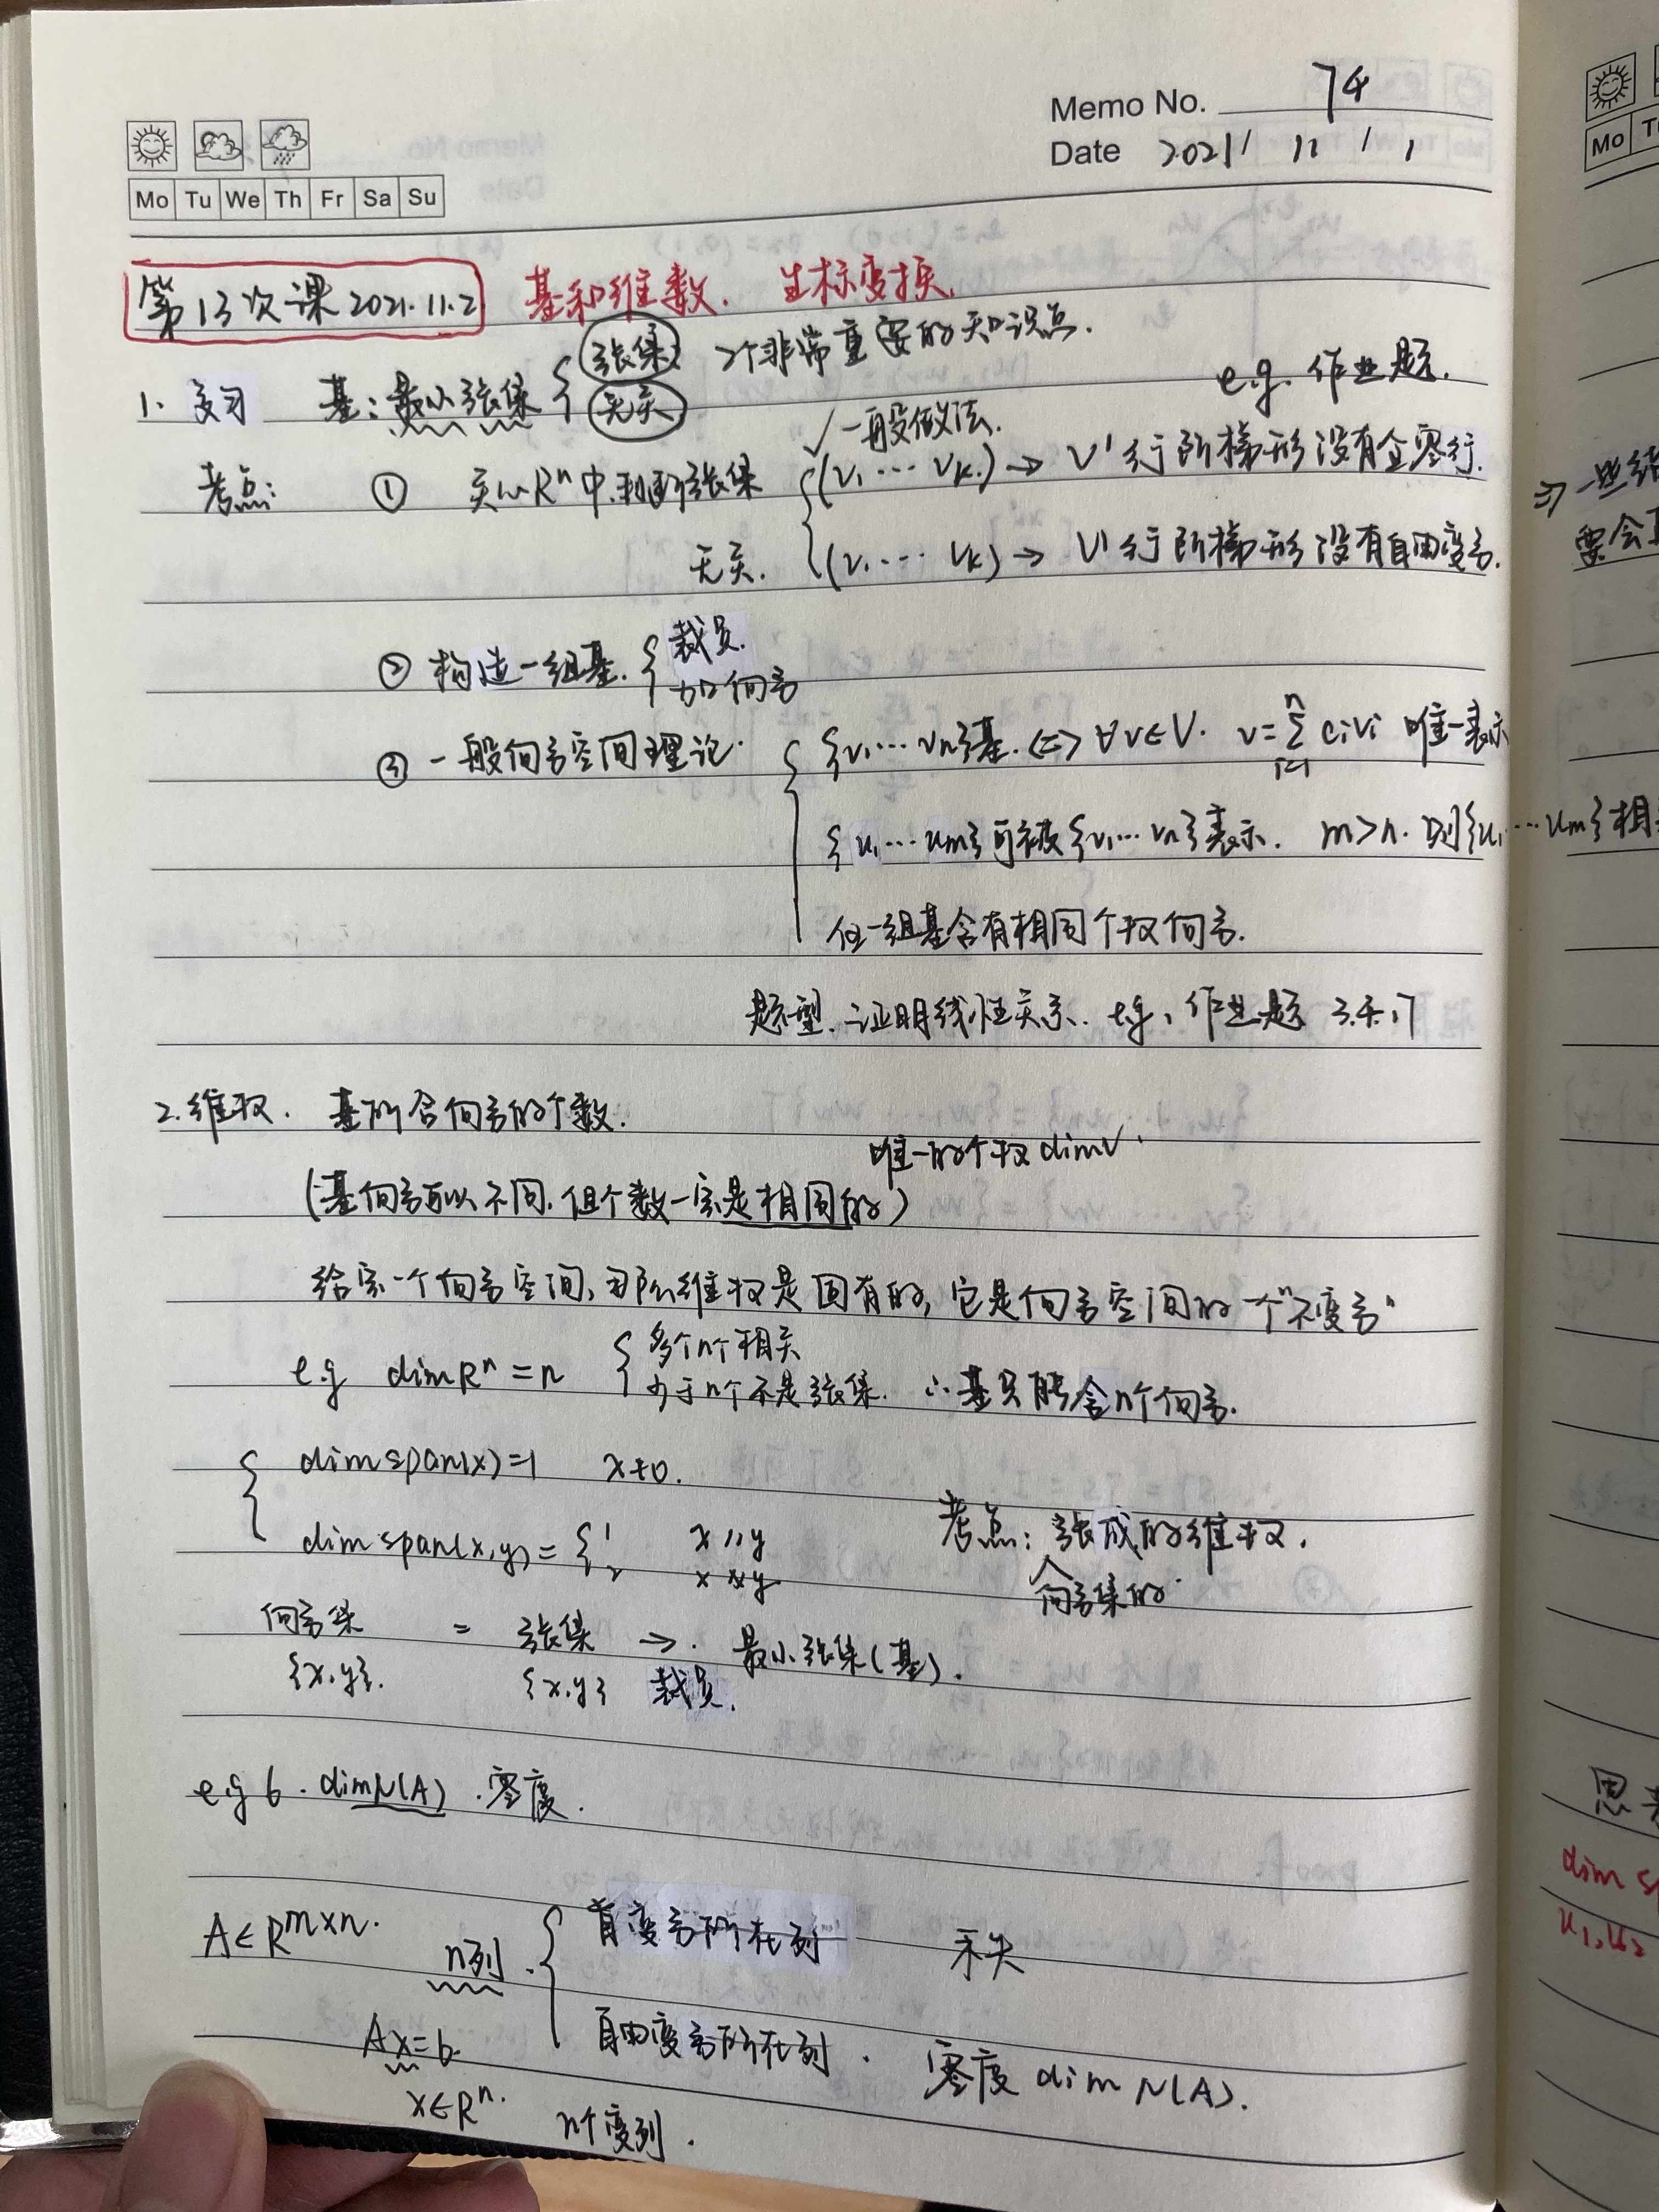 Memo No. 74
Date 2021/ 11 / 1
Mo Tu We Th Fr Sa Su
第13次课 2021.11.2 基和维数. 坐标变换.
1. 复习 基: 最小张集 { 张集. 无关 2个非常重要的知识点.
e.g. 作业题.
✓一般做法.
考点: ① 关心Rⁿ中.判断张集 { (v₁ ⋯ vₖ) → V' 行阶梯形没有全零行.
无关. (v₁ ⋯ vₖ) → V' 行阶梯形没有自由变量.
② 构造一组基. { 裁员.
加向量
③ 一般向量空间理论. { {v₁⋯vₙ}基. <=> ∀v∈V. v=∑ᵢ₌₁ⁿ cᵢvᵢ 唯一表示
{u₁⋯uₘ}可被{v₁⋯vₙ}表示. m>n. 则{u₁⋯uₘ}相
任一组基含有相同个数向量.
题型. 证明线性关系. e.g. 作业题 3.4.7
2.维数. 基所含向量的个数.
唯一的个数 dimV.
(基向量可以不同.但个数一定是相同的)
给定一个向量空间,那么维数是固有的, 它是向量空间的一个"不变量"
e.g dimRⁿ = n { 多个n个相关
少于n个不是张集. ∴基只能含n个向量.
{ dimspan(x)=1 x≠0.
dimspan(x,y) = { 1 x // y
2 x ∦ y
考点: 张成的维数.
向量集的.
向量集 = 张集 → 最小张集(基).
{x,y}. {x,y} 裁员.
e.g 6. dimN(A) .零度.
A∈Rᵐˣⁿ. n列 . { 首变量所在列 秩
Ax=b. 自由变量所在列. 零度 dim N(A).
x∈Rⁿ. n个变列.
Mo
⇒ 一些结
要会
思
dim sp
u₁,u₂